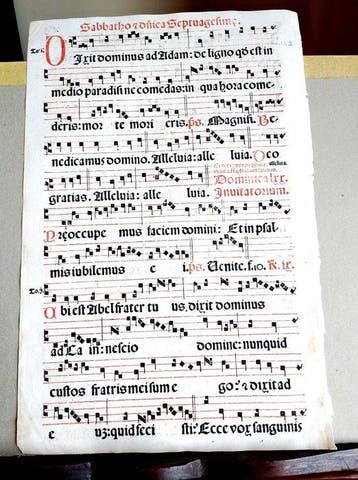 Sabbatho ⁊ dñica Septuagesime.
Dixit dominus ad Adam: de ligno qđ est in
medio paradisi ne comedas: in qua hora come-
deris: mor te mori eris. ps. Magnifi. Be-
nedicamus domino. Alleluia: alle luia. Deo
gratias. Alleluia: alle luia. Dominica lxx.
Inuitatorium.
Preoccupe mus faciem domini: Et in psal-
mis iubilemus e i. ps. Uenite. f.10. R. ix.
Ubi est Abel frater tu us, dixit dominus
ad Ca in: nescio domine: nunquid
custos fratris mei sum e go? ⁊ dixit ad
e uz: quid feci sti? Ecce vox sanguinis